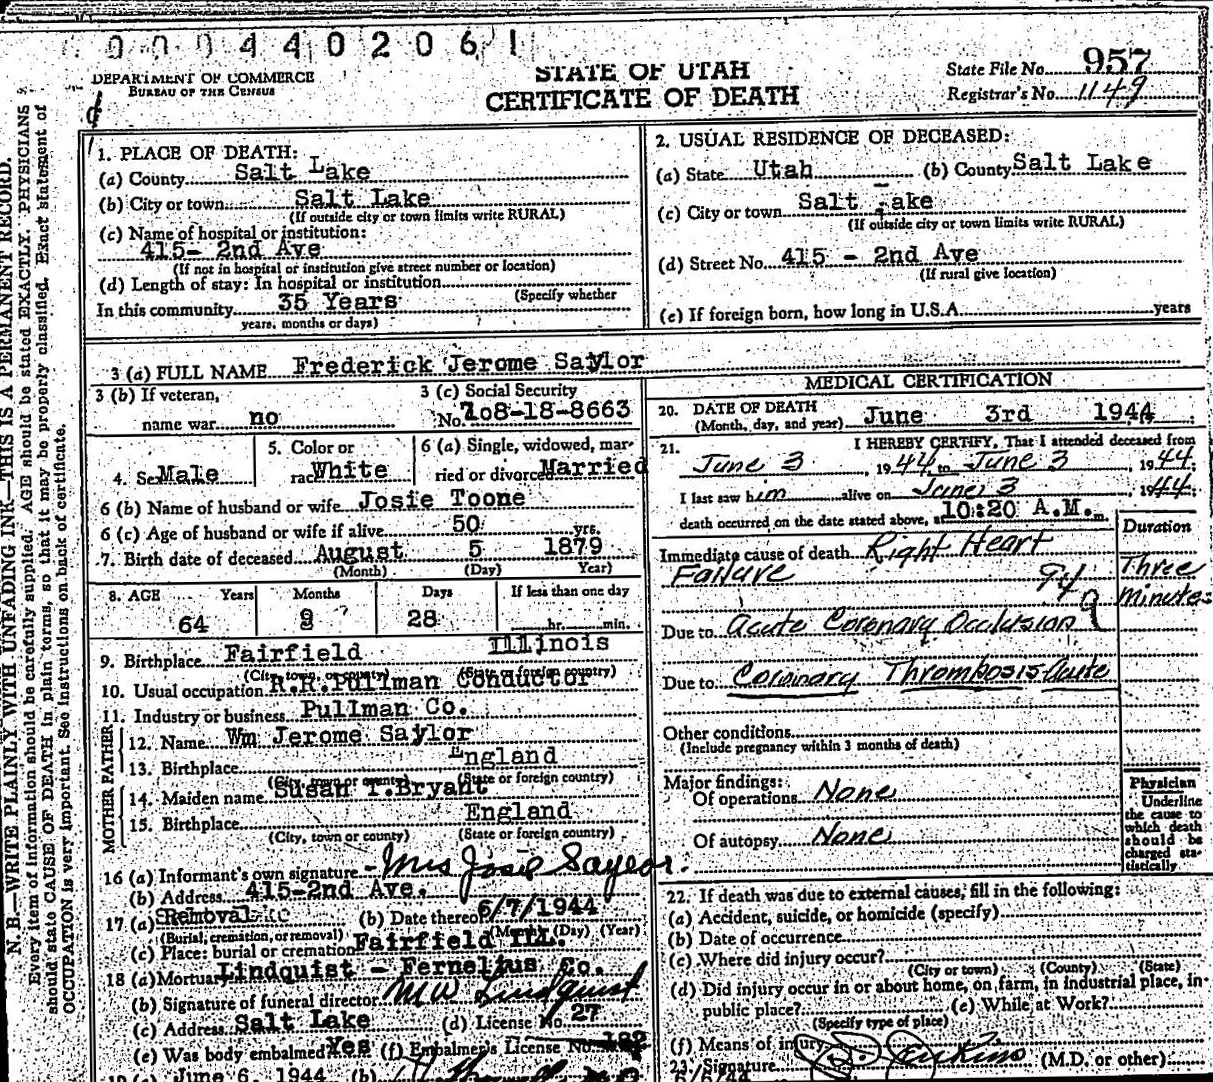 0 0 0 4 4 0 2 0 6 1
DEPARTMENT OF COMMERCE
BUREAU OF THE CENSUS
STATE OF UTAH
CERTIFICATE OF DEATH
State File No. 957
Registrar's No. 1149
N. B.—WRITE PLAINLY, WITH UNFADING INK—THIS IS A PERMANENT RECORD.
Every item of information should be carefully supplied. AGE should be stated EXACTLY. PHYSICIANS
should state CAUSE OF DEATH in plain terms, so that it may be properly classified. Exact statement of
OCCUPATION is very important. See instructions on back of certificate.
1. PLACE OF DEATH:
(a) County Salt Lake
(b) City or town Salt Lake
(If outside city or town limits write RURAL)
(c) Name of hospital or institution:
415- 2nd Ave
(If not in hospital or institution give street number or location)
(d) Length of stay: In hospital or institution
(Specify whether
In this community 35 Years
years, months or days)
2. USUAL RESIDENCE OF DECEASED:
(a) State Utah (b) County Salt Lake
(c) City or town Salt Lake
(If outside city or town limits write RURAL)
(d) Street No. 415 - 2nd Ave
(If rural give location)
(e) If foreign born, how long in U.S.A. years
3 (a) FULL NAME Frederick Jerome Saylor
3 (b) If veteran,
name war no
3 (c) Social Security
No. 708-18-8663
4. Sex Male
5. Color or
race White
6 (a) Single, widowed, mar-
ried or divorced Married
6 (b) Name of husband or wife Josie Toone
6 (c) Age of husband or wife if alive 50 yrs.
7. Birth date of deceased August 5 1879
(Month) (Day) Year)
8. AGE Years Months Days If less than one day
64 9 28 hr. min.
9. Birthplace Fairfield Illinois
(City, town or county) (State or foreign country)
10. Usual occupation R.R.Pullman Conductor
11. Industry or business Pullman Co.
FATHER
12. Name Wm Jerome Saylor
13. Birthplace England
(City, town or county) (State or foreign country)
MOTHER
14. Maiden name Susan T.Bryant
15. Birthplace England
(City, town or county) (State or foreign country)
16 (a) Informant's own signature Mrs Josie Saylor.
(b) Address 415-2nd Ave.
17 (a) Removal (b) Date thereof 6/7/1944
(Burial, cremation, or removal) (Month) (Day) (Year)
(c) Place: burial or cremation Fairfield Ill.
18 (a) Mortuary Lindquist - Fernelius Co.
(b) Signature of funeral director M W Lindquist
(c) Address Salt Lake (d) License No. 27
(e) Was body embalmed Yes (f) Embalmer's License No. 182
19 (a) June 6, 1944 (b)
MEDICAL CERTIFICATION
20. DATE OF DEATH
(Month, day, and year) June 3rd 1944
21. I HEREBY CERTIFY, That I attended deceased from
June 3, 1944 to June 3, 1944.
I last saw him alive on June 3, 1944.
death occurred on the date stated above, at 10:20 A.M. m
Duration
Immediate cause of death Right Heart
Failure 94 Three
minutes
Due to acute Coronary Occlusion
Due to Coronary Thrombosis-acute
Other conditions
(Include pregnancy within 3 months of death)
Major findings:
Of operations None
Of autopsy None
Physician
Underline
the cause to
which death
should be
charged sta-
tistically.
22. If death was due to external causes, fill in the following:
(a) Accident, suicide, or homicide (specify)
(b) Date of occurrence
(c) Where did injury occur?
(City or town) (County) (State)
(d) Did injury occur in or about home, on farm, in industrial place, in
public place? (e) While at Work?
(Specify type of place)
(f) Means of injury
23. Signature Jenkins (M.D. or other)